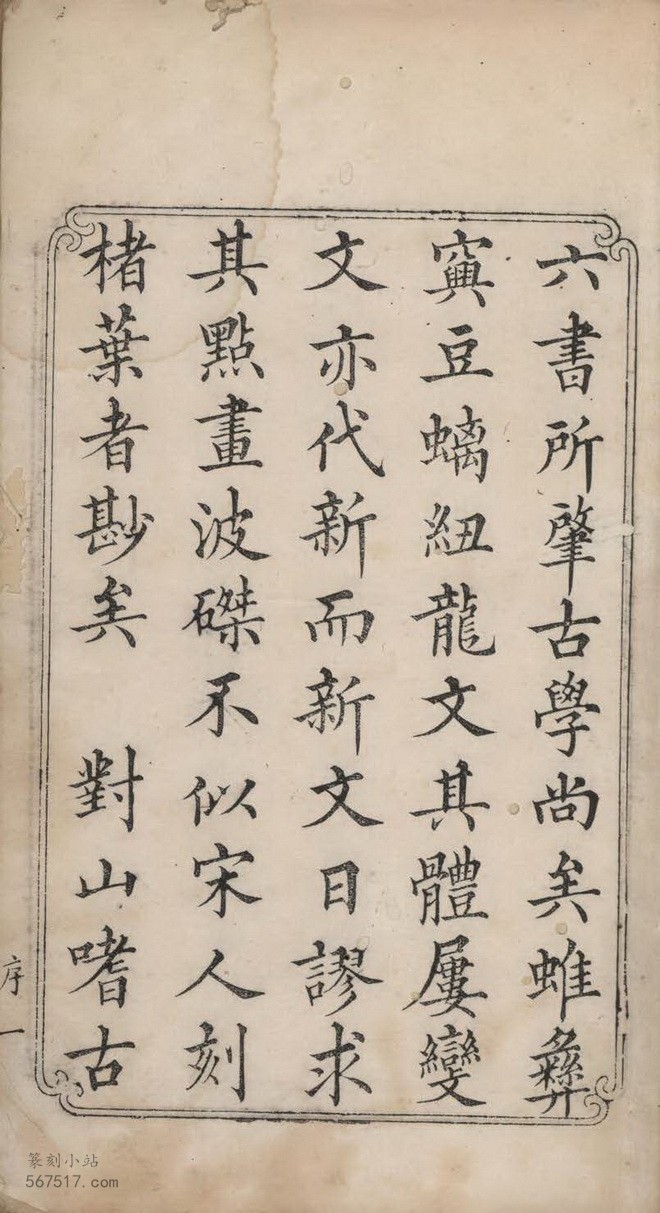 六書所肇古學尚矣蜼彝
寅豆螭紐龍文其體屢變
文亦代新而新文日謬求
其點畫波磔不似宋人刻
楮葉者尠矣　對山嗜古
序一
篆刻小站
567517.com